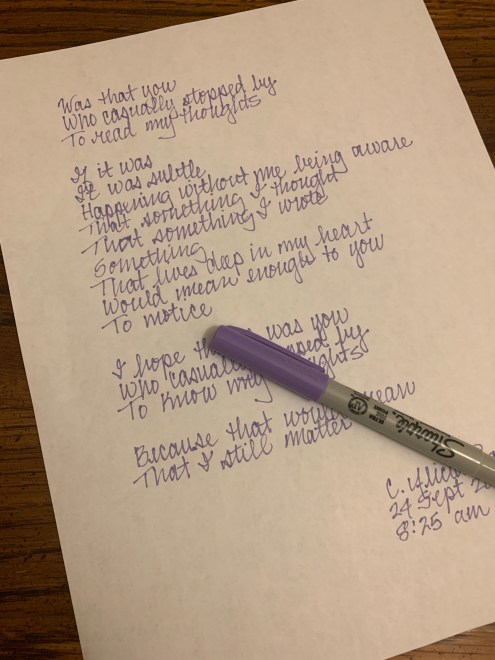 Was that you
Who casually stopped by
To read my thoughts
If it was
It was subtle
Happening without me being aware
That something I thought
That something I wrote
Something
That lives deep in my heart
Would mean enough to you
To notice
I hope was you
Who casually by
To know my
Because that would mean
That I still matter
Sharpie
C.
24 Sept
8:25 am